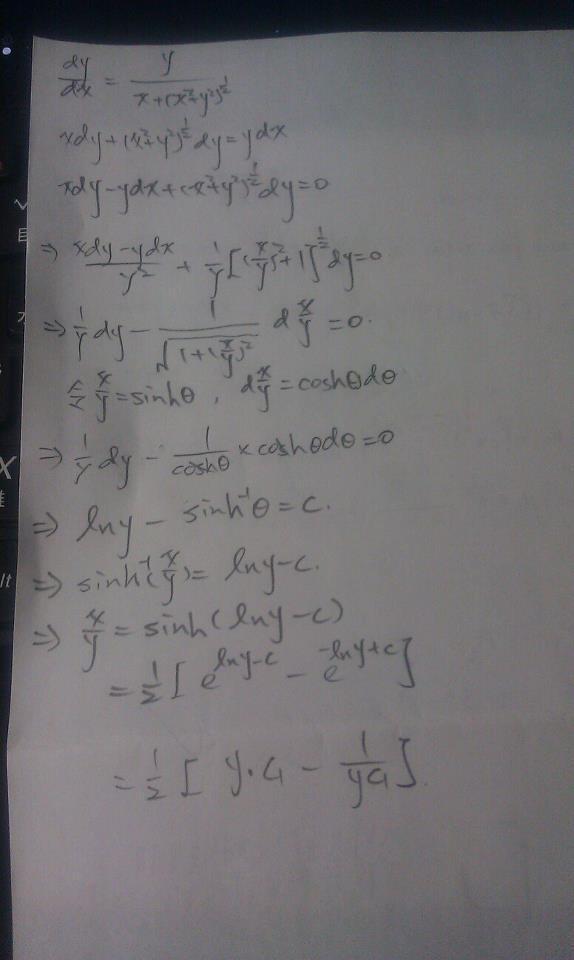 dy/dx = y/(x+(x²+y²)^½)
xdy+(x²+y²)^½ dy=ydx
xdy-ydx+(x²+y²)^½ dy=0
⇒ (xdy-ydx)/y² + 1/y[(x/y)²+1]^½ dy=0
⇒ 1/y dy - 1/√(1+(x/y)²) d x/y =0.
令 x/y=sinhθ, d x/y=coshθdθ
⇒ 1/y dy - 1/coshθ × coshθdθ=0
⇒ lny - sinh⁻¹θ=c.
⇒ sinh⁻¹(x/y)= lny-c.
⇒ x/y = sinh(lny-c)
= 1/2 [e^(lny-c) - e^(-lny+c)]
= 1/2 [y·C₁ - 1/(yC₁)].